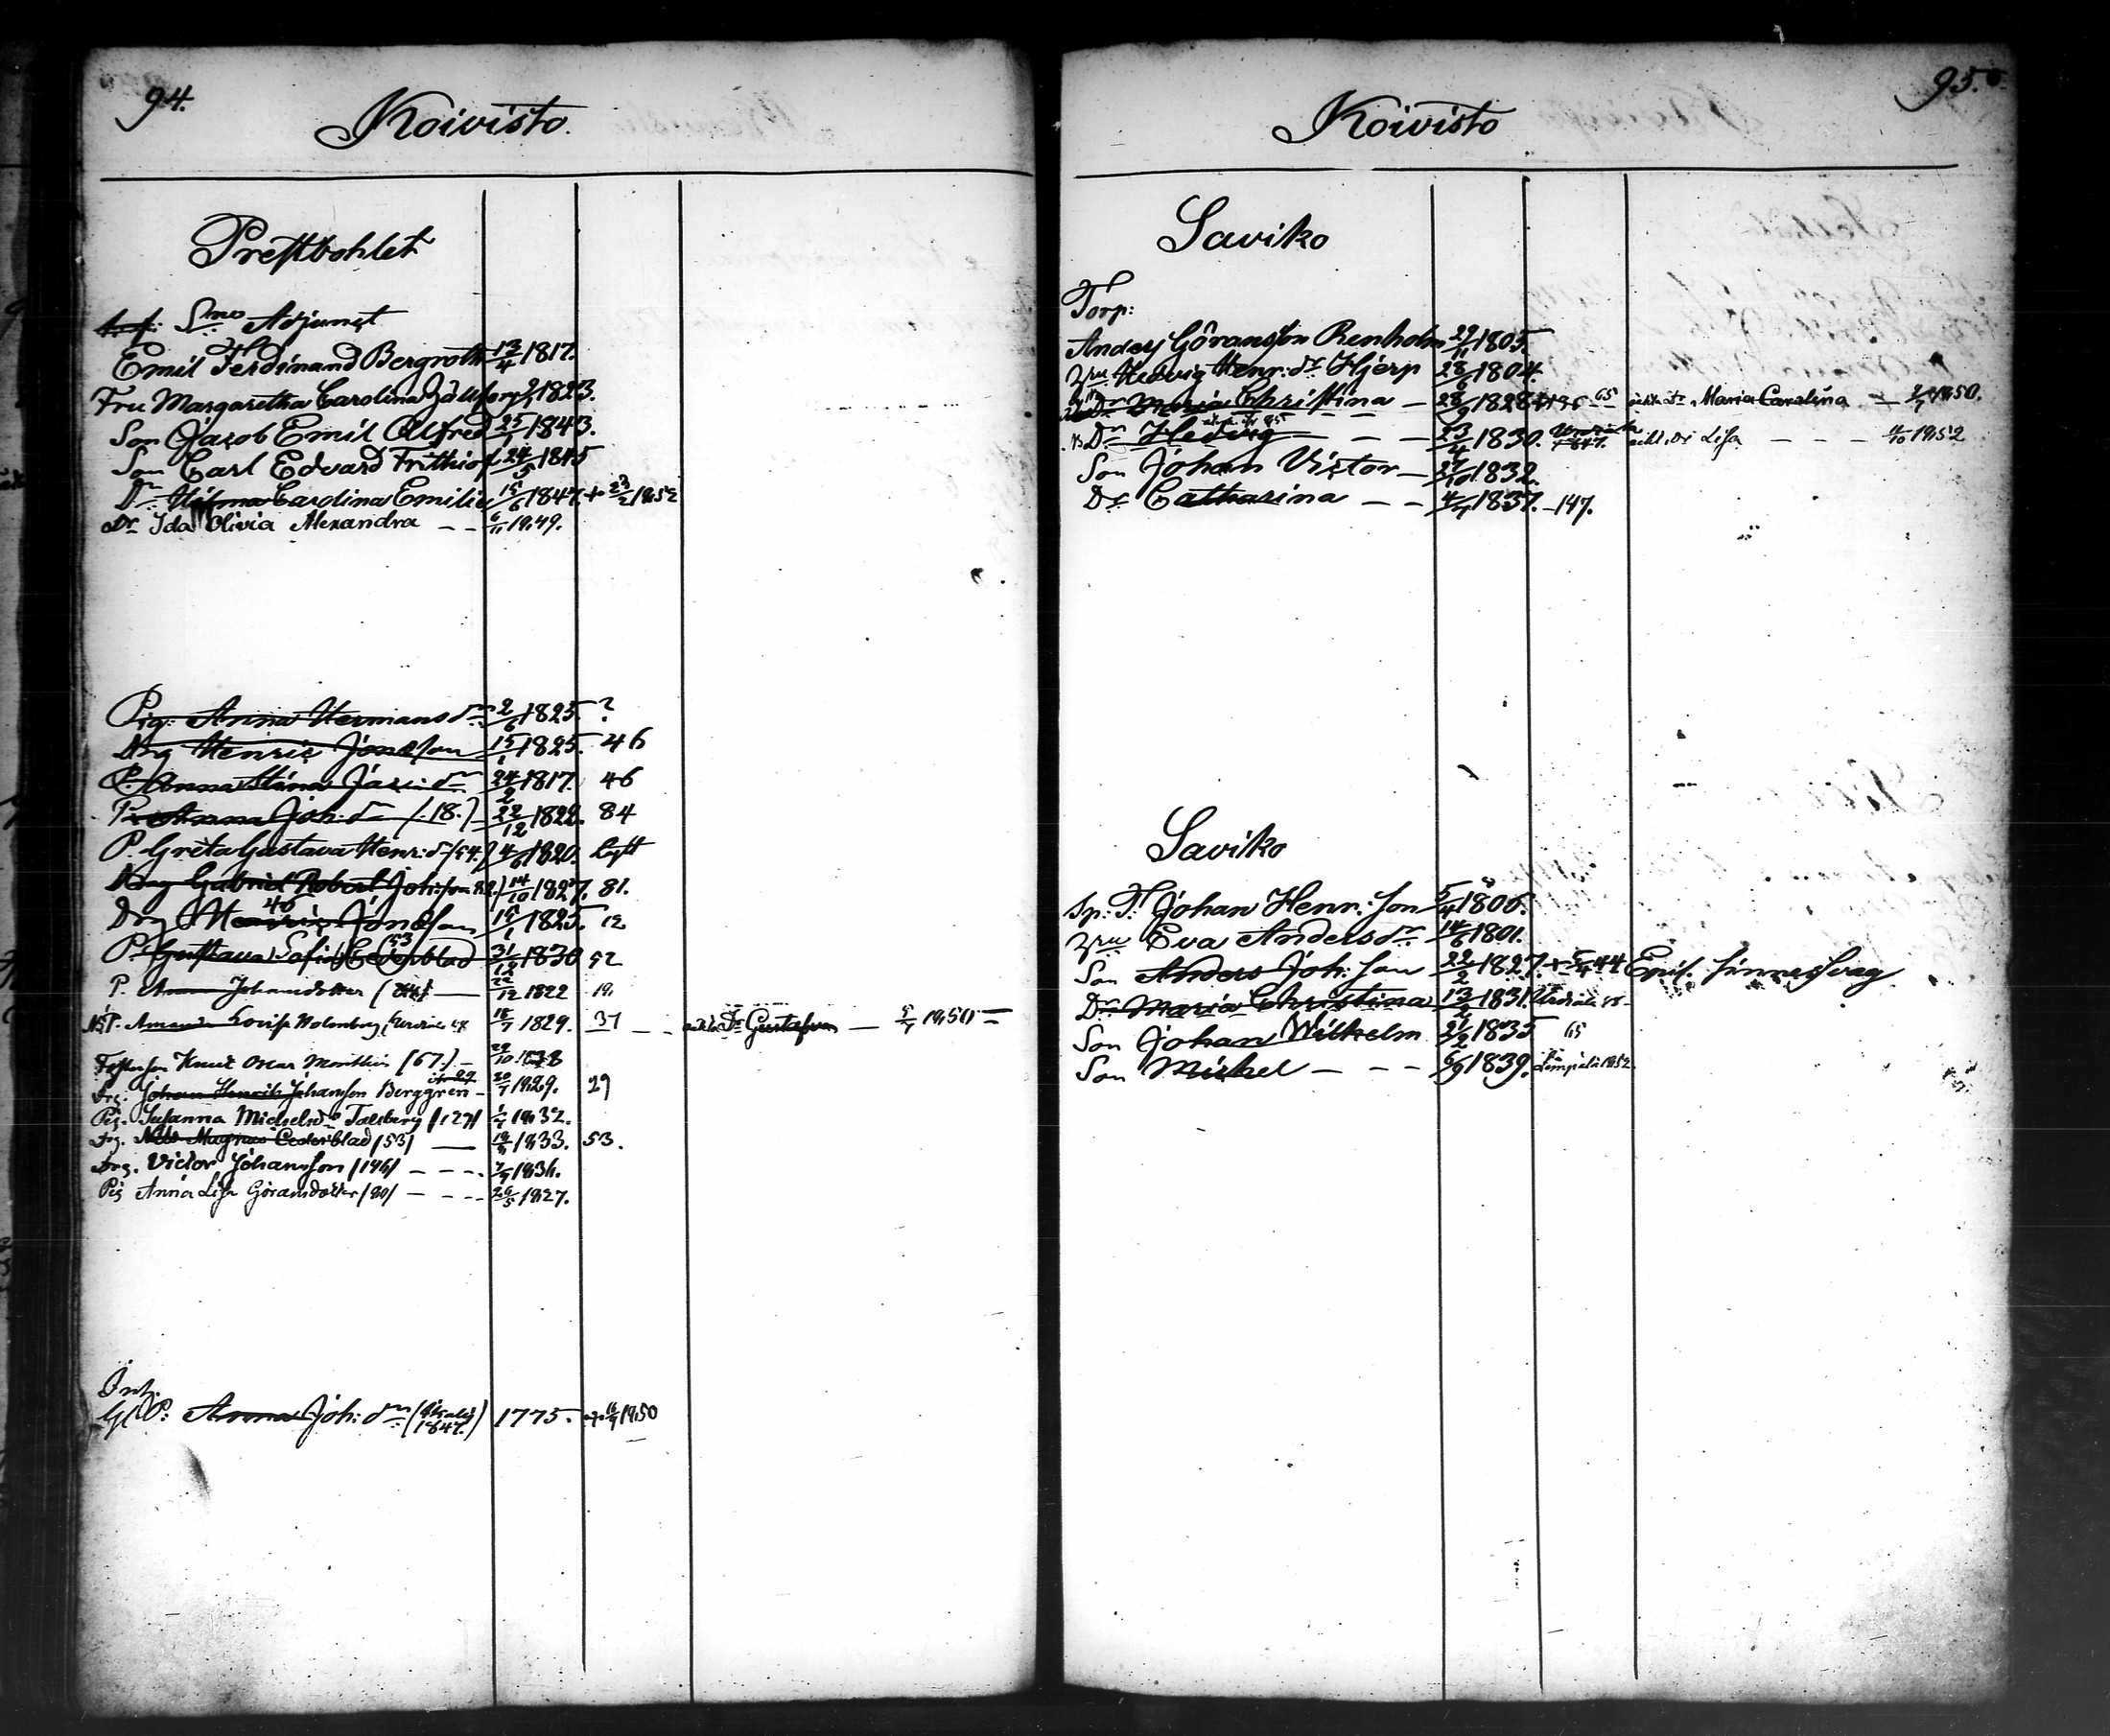 94.
Koivisto.
Prestbohlet
Adjunct
Emil Ferdinand Bergroth 13/4 1817.
Fru Margaretha Carolina 1823.
Son Jacob Emil Alfred 25/1 1843.
Son Carl Edvard Frithiof 24/5 1845
Dr Hilma Carolina Emilie 15/6 1847. + 23/2 1852
Dr. Ida Olivia Alexandra – – 6/11 1849.
Pig: Anna Hermansdr 2/6 1825. ?
Drg Henric Jonasson 15/1 1825. 46
P. Anna Stina Jac: dr 24/2 1817. 46
P. Anna Joh: dr (18.) 22/12 1822. 84
P. Greta Gustava Henr: dr (54.) 4/6 1820.
Drg Gabriel Robert Joh: son 14/10 1827. 81.
46
Drg Henric Jonasson 15/1 1825. 12
53
P. Gustava Sofia Cederblad 31/12 1830 52
P. Anna Johansdotter 22/12 1822 19.
P. Amanda Lovisa Holmberg, 18/7 1829. 37 – – Dr Gustafva — 5/7 1850
Knut Oscar (67.) – 29/10
Drg. Johan Henrik Johansson Berggren – 20/7 1829. 29
Pig. Susanna Michelsdr Talberg /127/ 1832.
Drg. Nils Magnus Cederblad /53/ — 1833. 53.
Drg. Victor Johansson /146/ – – – 7/7 1831.
Pig Anna Lisa Göransdotter /80/ – – – 26/5 1827.
P: Anna Joh: dr 1847.) 1775. 1850
95.
Koivisto
Saviko
Torp:
Anders Göransson Renholm 29/11 1805.
Hru Hedvig Henr: dr Hjerp 28/6 1804.
Dr Maria Christina — 28/9 1828 65 Dr Maria Carolina — 1850.
Dr Hedvig – – – 23/4 1830. 1847. Dr Lisa – – – 11/10 1852
Son Johan Victor – 27/10 1832.
Dr Catharina – – 4/7 1837. –147.
Saviko
Sp: T. Johan Henr: son 5/4 1806.
Hru Eva Anders dr 14/6 1801.
Son Anders Joh: son 22/2 1827. + 5/4 44
Dr Maria Christina 13/2 1831.
Son Johan Wilhelm 21/2 1835 65
Son Michel – – – 6/9 1839. Lempälä 1852.